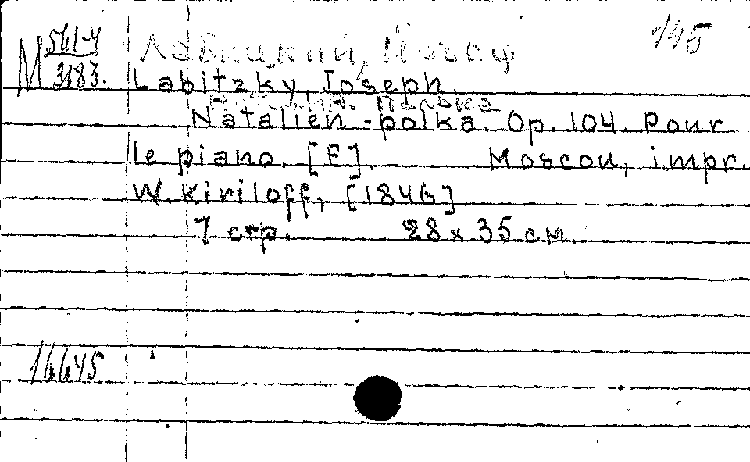 М 561-4
3183.
145
Лабицкий, Йозеф
Labitzky, Joseph
Natalien-polka. Op. 104. Pour
le piano. [E]. Moscou, impr.
W. Kiriloff, [1846]
7 стр. 28 x 35 см.
16645